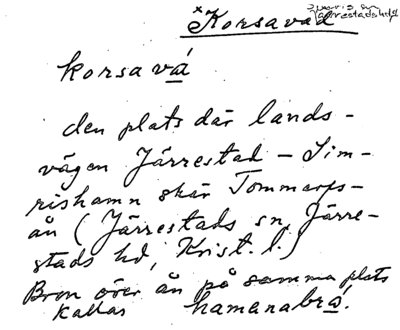 ×Korsavad
Järrestads hd
korsavá
den plats där lands-
vägen Järrestad - Sim-
rishamn skär Tommarps-
ån (Järrestads sn, Järre-
stads hd, Krist. l.)
Bron över ån på samma plats
kallas hamanabrá.